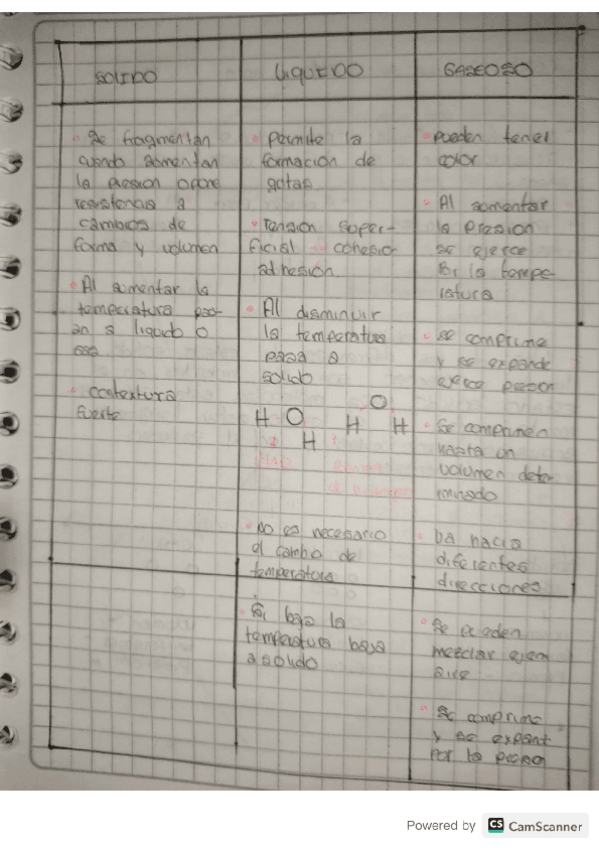 SOLIDO
LIQUIDO
GASEOSO
Se fragmentan
cuando aumentan
la presion opone
resistencia a
cambios de
forma y volumen
Al aumentar la
temperatura pas-
an a liquido o
contextura
fuerte
Permite la
formación de
gotas
Tension super-
ficial cohesion
adhesión.
Al disminuir
la temperatura
pasa a
solido
H O H O H
H
No es necesario
el cambio de
temperatura
Si bajo la
temperatura baja
a solido
Pueden tener
color
Al aumentar
la presion
se ejerce
Por la tempe-
ratura
se comprime
y se expande
ejerce presion
Se comprimen
hasta un
volumen deter
minado
Va hacia
diferentes
direcciones
Se pueden
mezclar ejem
aire
Se comprime
y se expand
Por la presion
Powered by CS CamScanner